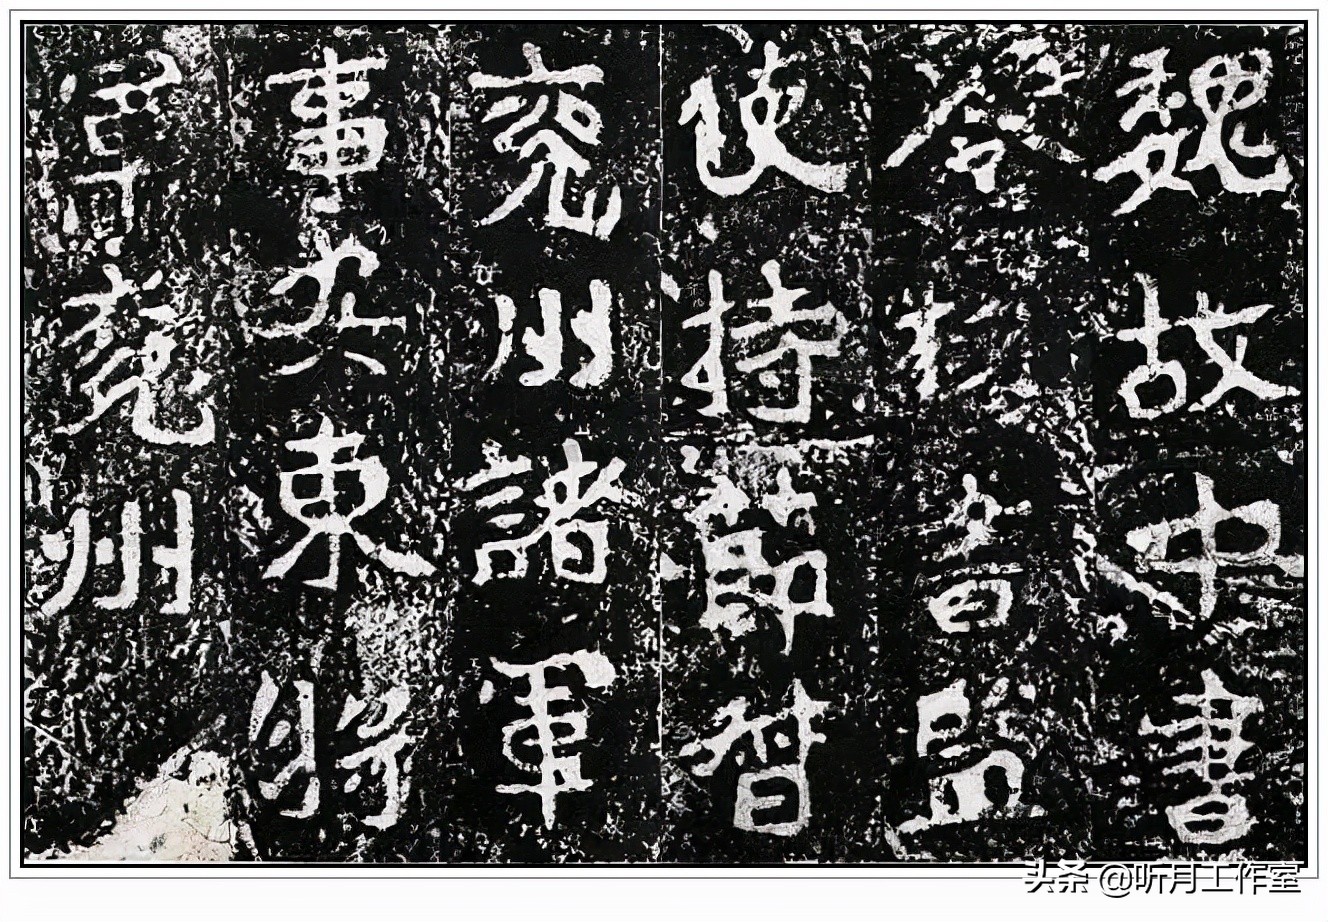 魏故中書
令秘書監
使持節督
兗州諸軍
事安東將
軍兗州
头条 @听月工作室